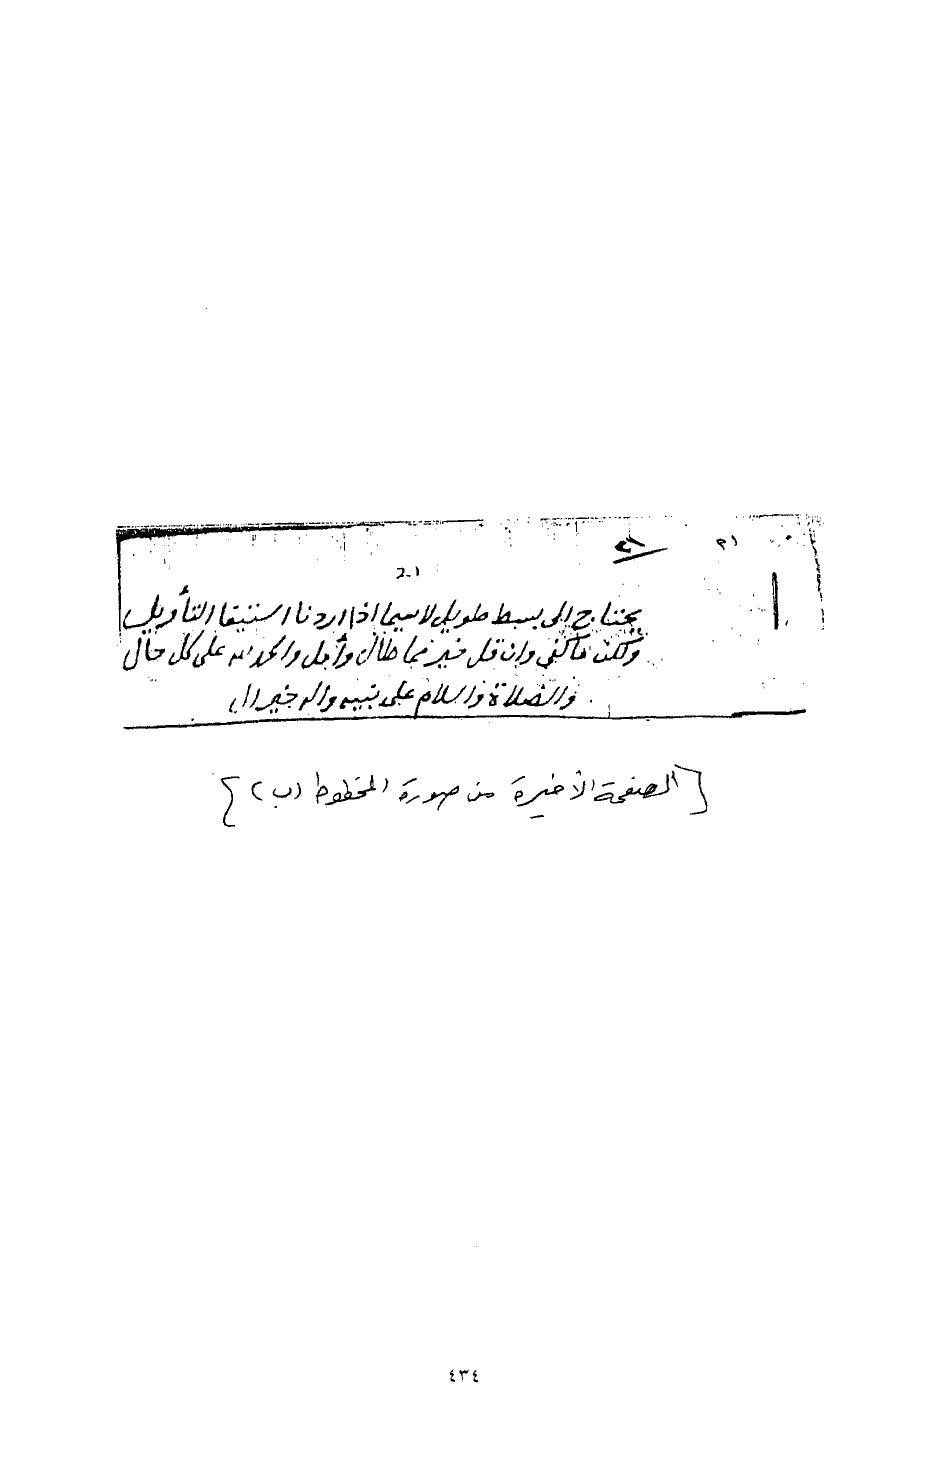 ٢٠١
يحتاج إلى بسط طويل لاسيما اذا اردنا استيفا التأويل
ولكن ماكفى وان قل خير مما طال وأمل والحمد لله على كل حال
والصلاة والسلام على نبيه واله خير ال
[الصفحة الأخيرة من صورة المخطوط (ب)]
٤٣٤